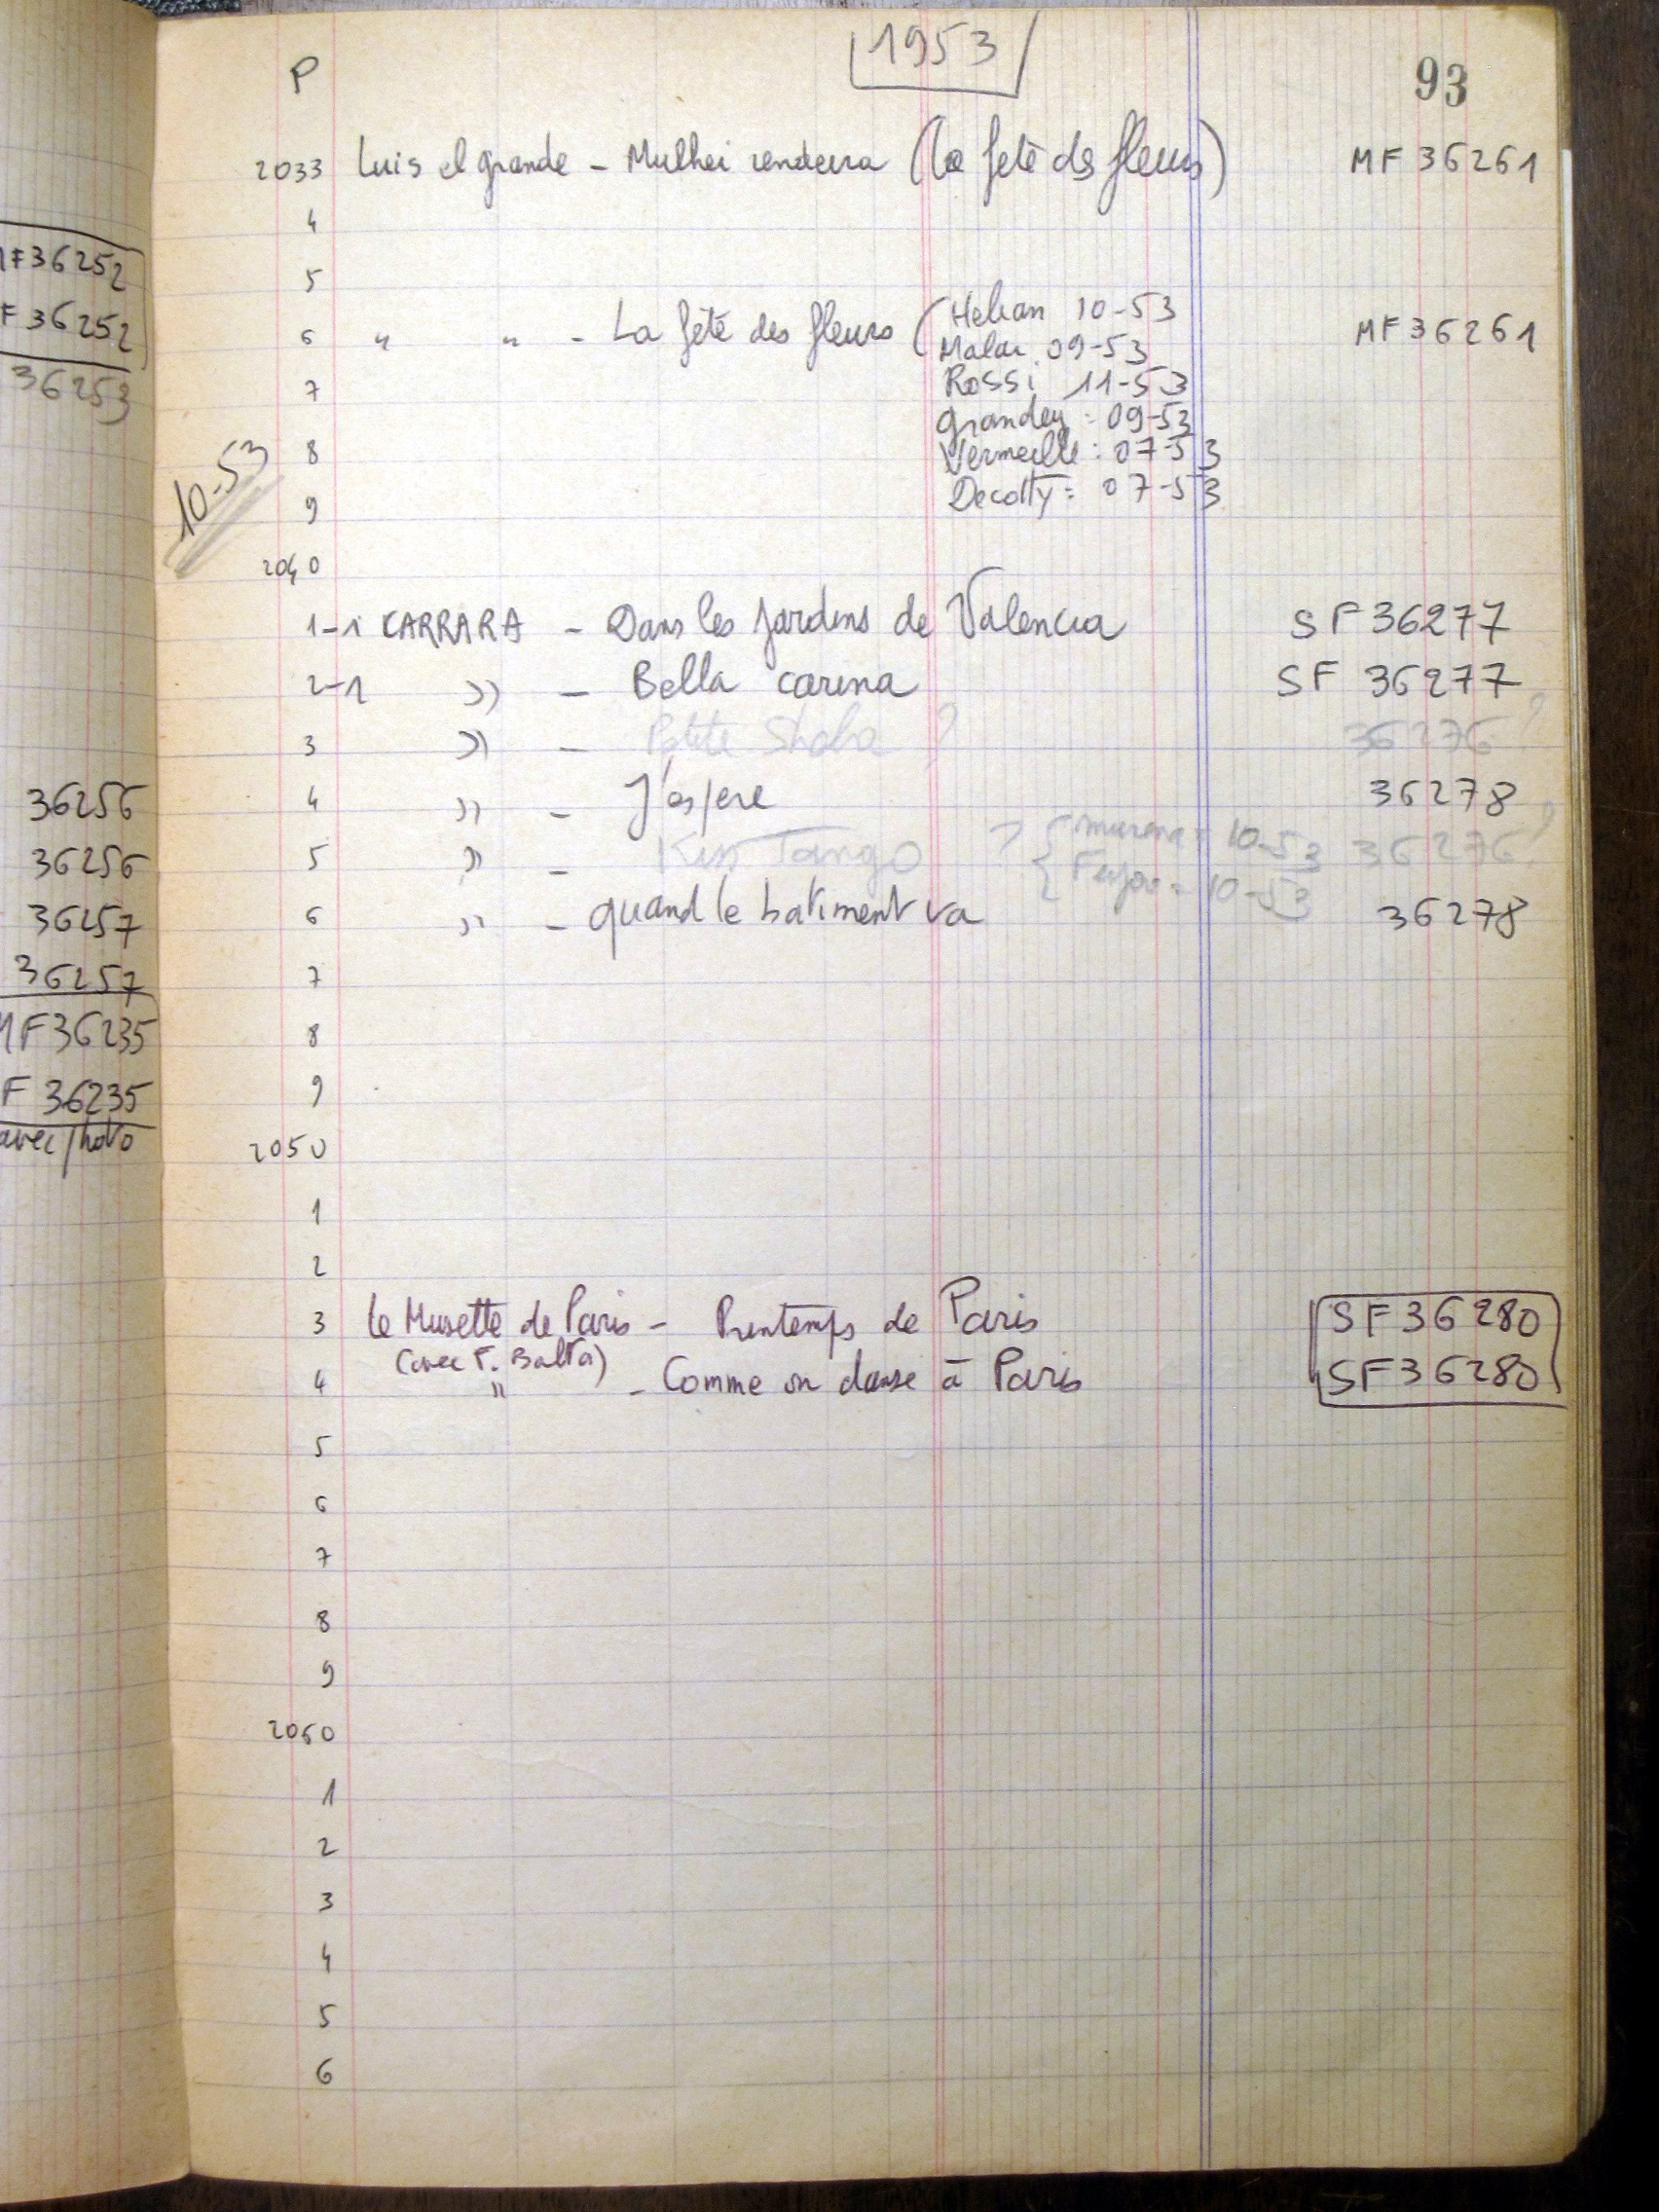 1953
P
93
2033 Luis el grande - Mulhei rendeira (La fete des fleurs) MF 36261
4
5
6 " " - La fête des fleurs ( Helian 10-53 MF 36261
Malar 09-53
7 Rossi 11-53
Grandey : 09-53
8 Vermeille : 07-53
9 Decotty = 07-53
10-53
2040
1-1 CARRARA - Dans les Jardins de Valencia SF 36277
2-1 " - Bella carina SF 36277
3 " - Petite Shaba ? 36276 ?
4 " - J'espere 36278
5 " - Kiss Tango ? { murena = 10-53 36276 ?
= 10-53
6 " - quand le batiment va 36278
7
8
9
2050
1
2
3 Le Musette de Paris - Printemps de Paris SF 36280
(avec F. Balta)
4 " - Comme on danse à Paris SF 36280
5
6
7
8
9
2060
1
2
3
4
5
6
MF 36252
F 36252
36253
36256
36256
36257
36257
MF 36235
F 36235
avec photo